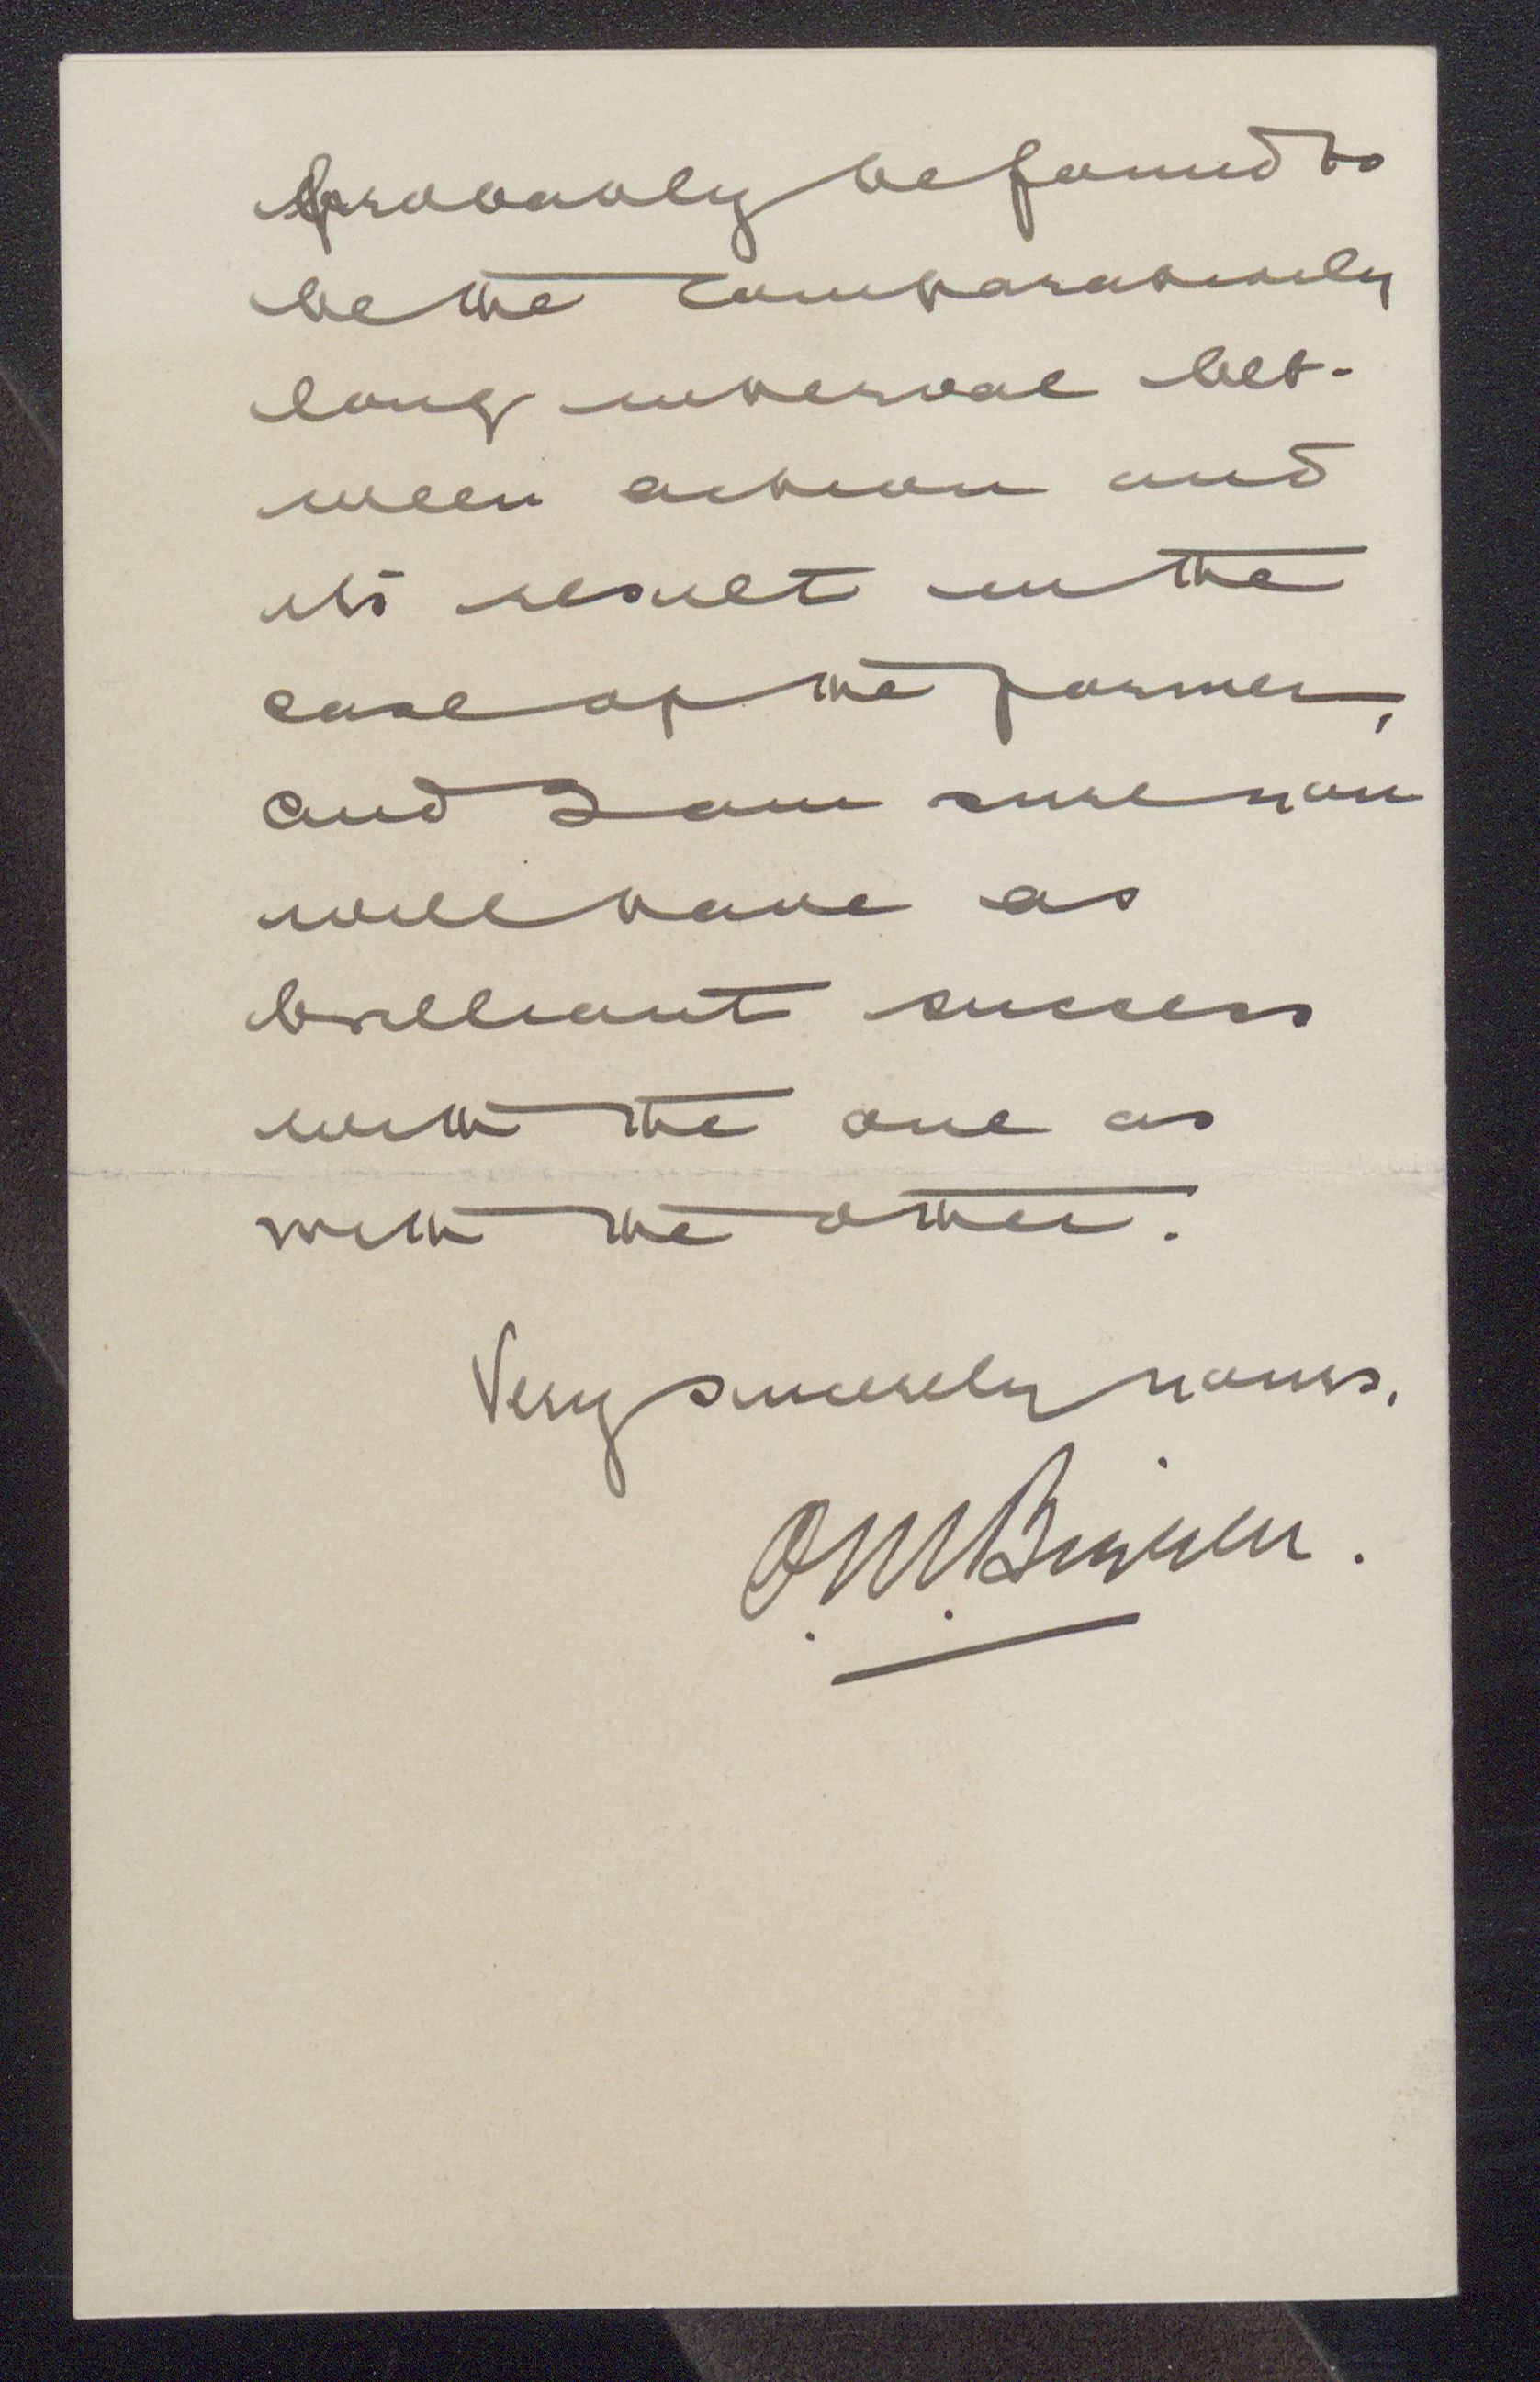 probably be found to
be the comparatively
long interval bet-
ween action and
its result in the
case of the former,
and I am sure you
will have as
brilliant success
with the one as
with the other.
Very sincerely yours.
O. M.